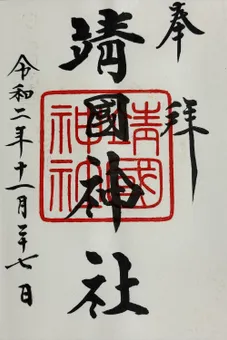 奉拜
靖國神社
靖國神社
令和二年十一月二十七日